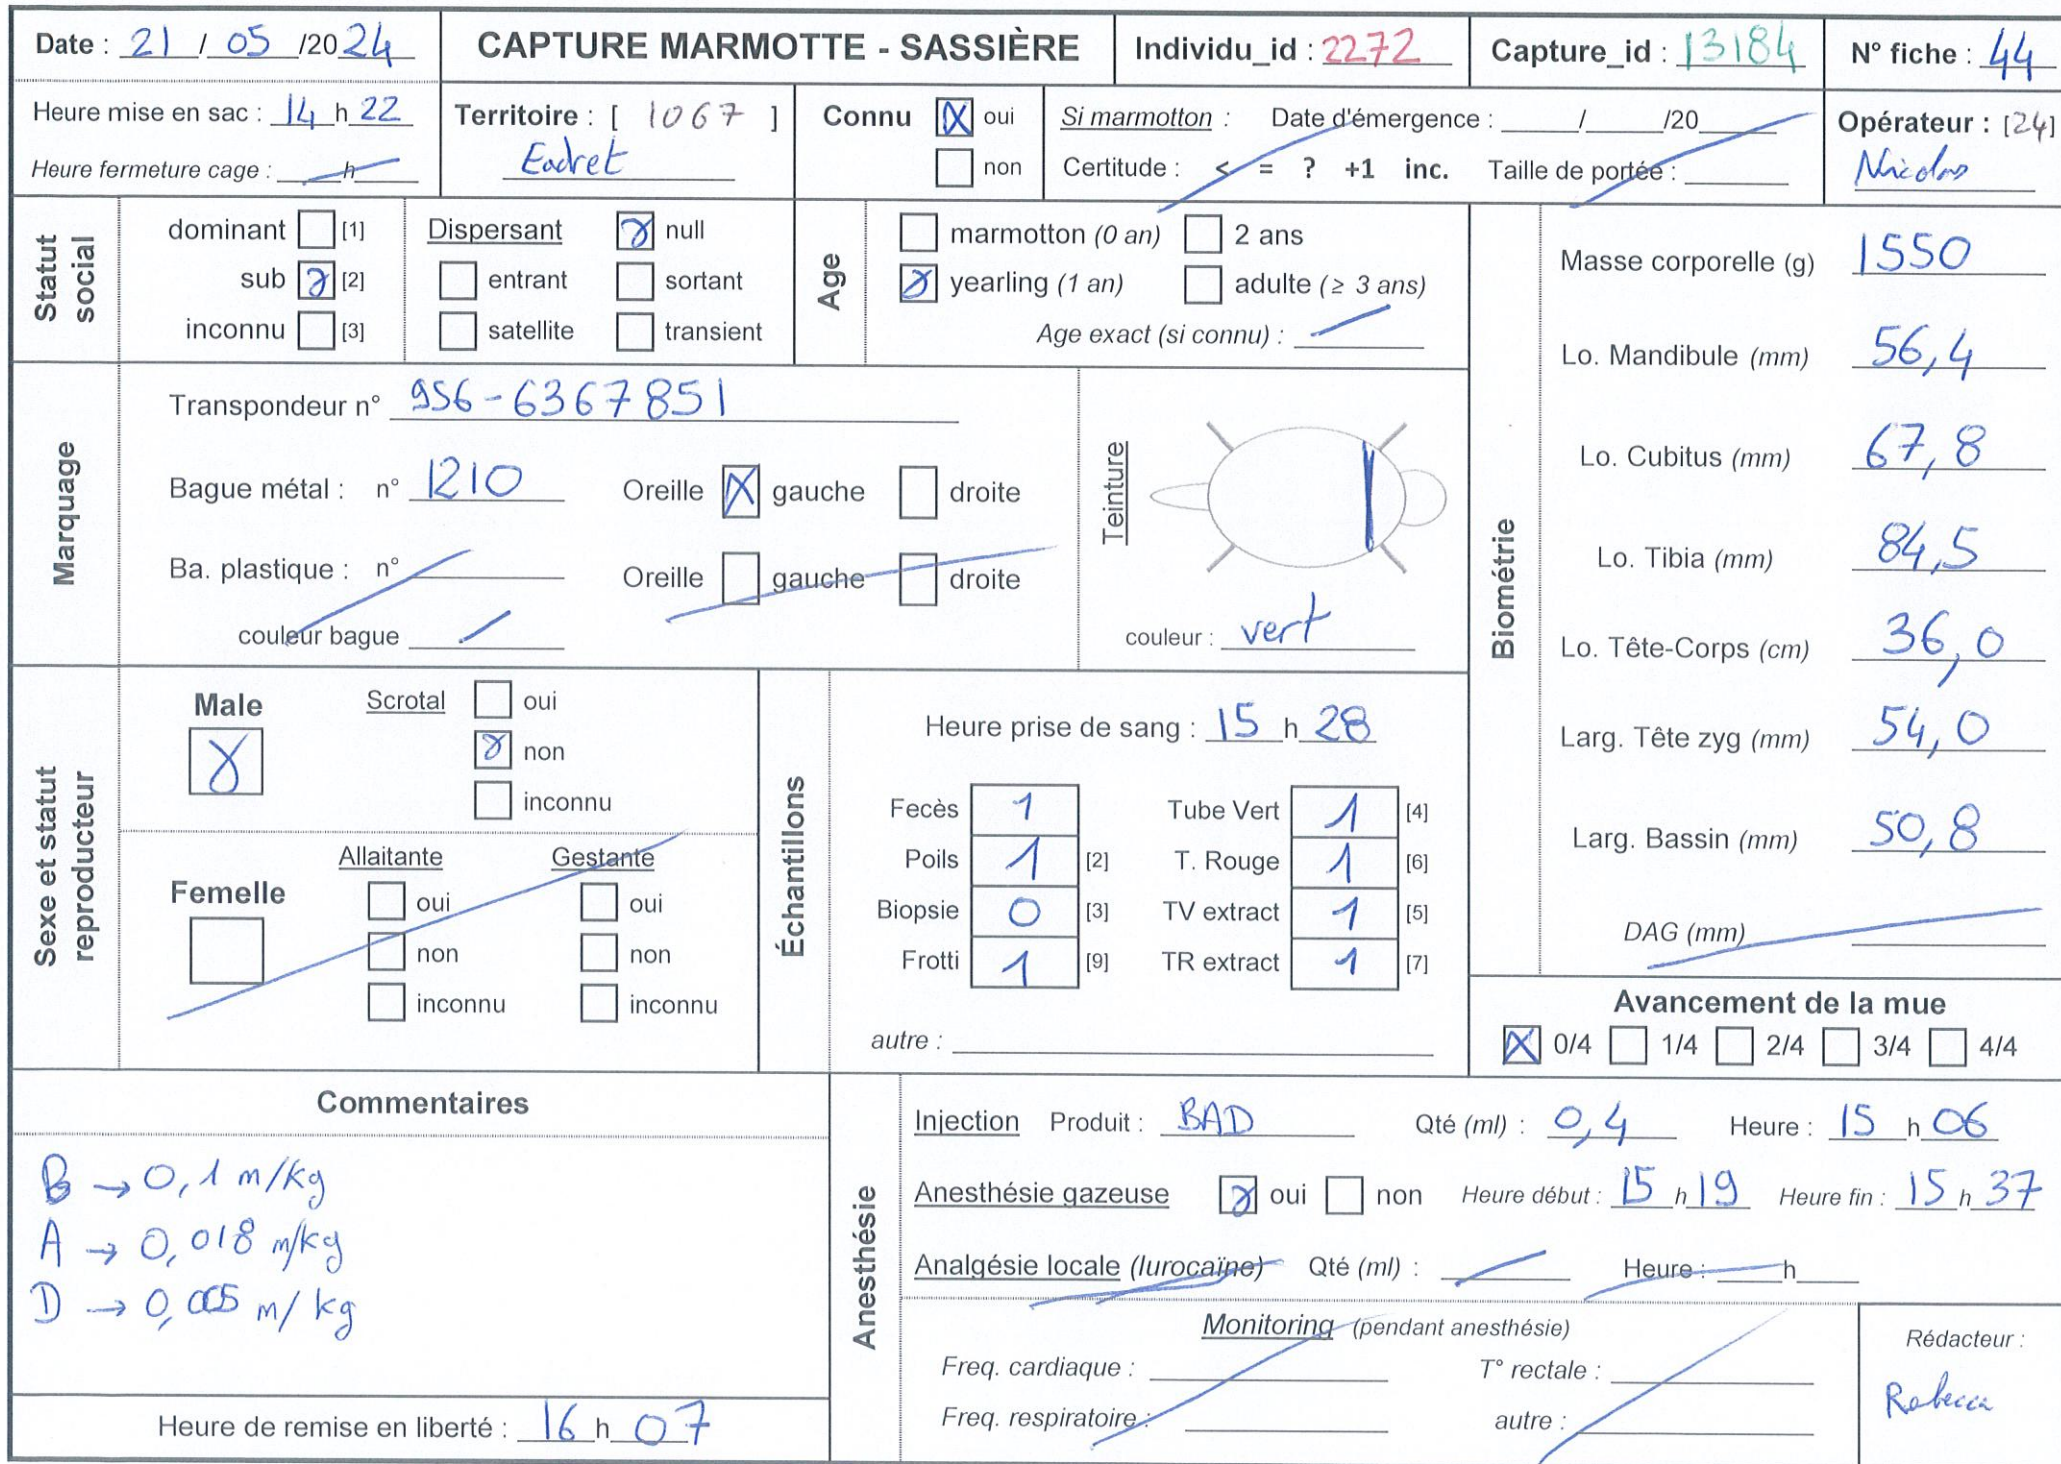 Date : 21 / 05 /20 24
CAPTURE MARMOTTE - SASSIÈRE
Individu_id : 2272
Capture_id : 13184
N° fiche : 44
Heure mise en sac : 14 h 22
Heure fermeture cage : ____h____
Territoire : [ 1067 ]
Eadret
Connu ☒ oui
☐ non
Si marmotton : Date d'émergence : ____/____/20____
Certitude : < = ? +1 inc. Taille de portée : ____
Opérateur : [24]
Nicolas
Statut social
dominant ☐ [1]
sub ☒ [2]
inconnu ☐ [3]
Dispersant ☒ null
☐ entrant ☐ sortant
☐ satellite ☐ transient
Age
☐ marmotton (0 an) ☐ 2 ans
☒ yearling (1 an) ☐ adulte (≥ 3 ans)
Age exact (si connu) : ____
Marquage
Transpondeur n° 956-6367851
Bague métal : n° 1210 Oreille ☒ gauche ☐ droite
Ba. plastique : n° ____ Oreille ☐ gauche ☐ droite
couleur bague ____
Teinture
couleur : vert
Biométrie
Masse corporelle (g) 1550
Lo. Mandibule (mm) 56,4
Lo. Cubitus (mm) 67,8
Lo. Tibia (mm) 84,5
Lo. Tête-Corps (cm) 36,0
Larg. Tête zyg (mm) 54,0
Larg. Bassin (mm) 50,8
DAG (mm) ____
Sexe et statut reproducteur
Male ☒
Scrotal ☐ oui
☒ non
☐ inconnu
Femelle ☐
Allaitante Gestante
☐ oui ☐ oui
☐ non ☐ non
☐ inconnu ☐ inconnu
Échantillons
Heure prise de sang : 15 h 28
Fecès 1 Tube Vert 1 [4]
Poils 1 [2] T. Rouge 1 [6]
Biopsie 0 [3] TV extract 1 [5]
Frotti 1 [9] TR extract 1 [7]
autre : ____
Avancement de la mue
☒ 0/4 ☐ 1/4 ☐ 2/4 ☐ 3/4 ☐ 4/4
Commentaires
B → 0,1 m/kg
A → 0,018 m/kg
D → 0,005 m/kg
Heure de remise en liberté : 16 h 07
Anesthésie
Injection Produit : BAD Qté (ml) : 0,4 Heure : 15 h 06
Anesthésie gazeuse ☒ oui ☐ non Heure début : 15 h 19 Heure fin : 15 h 37
Analgésie locale (lurocaïne) Qté (ml) : ____ Heure : ____h____
Monitoring (pendant anesthésie)
Freq. cardiaque : ____ T° rectale : ____
Freq. respiratoire : ____ autre : ____
Rédacteur :
Rebecca